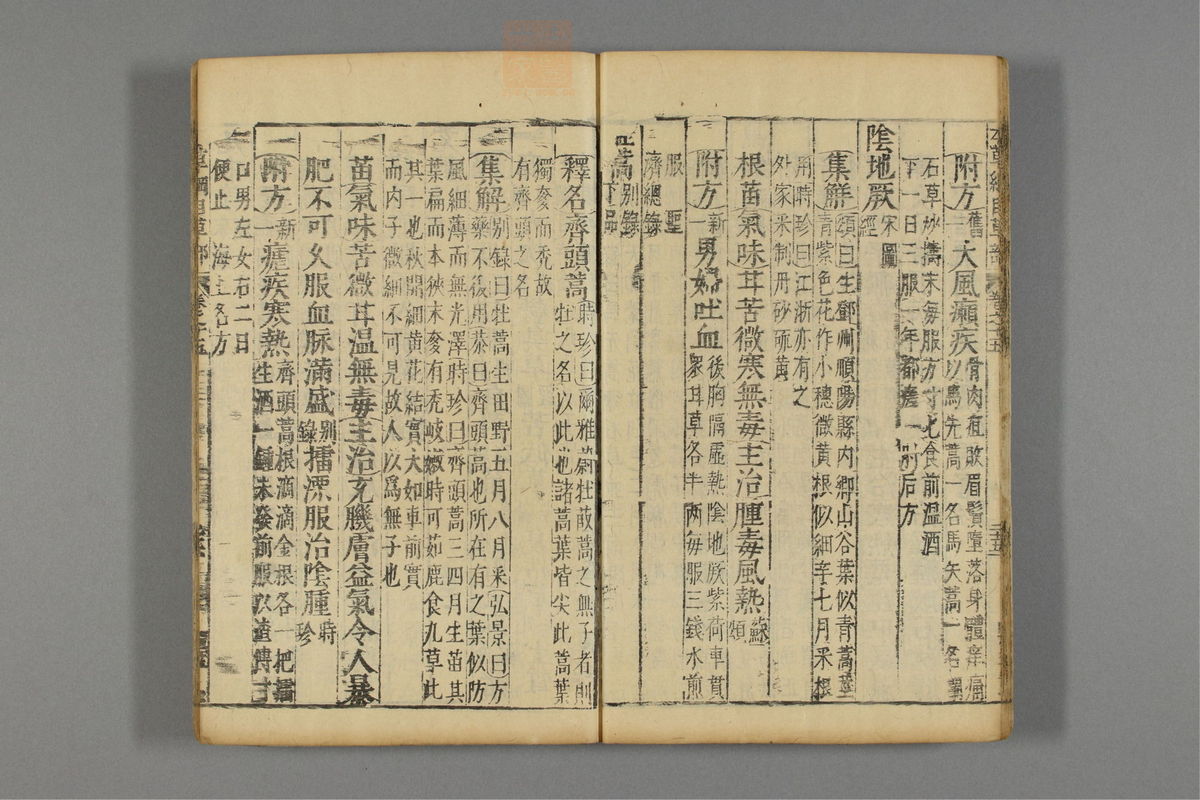 附方舊三大風癩疾骨肉疽敗眉鬚墮落身體痒痛
以馬先蒿一名馬矢蒿一名
石草炒擣末每服方寸匕食前温酒
下一日三服一年都瘥肘后方
陰地厥宋圖經
集解頌曰生鄧州順陽縣内鄉山谷葉似青蒿莖
青紫色花作小穗微黃根似細辛七月采根
用時珍曰江浙亦有之
外家采制丹砂硫黃
根苗氣味甘苦微寒無毒主治腫毒風熱蘇頌
附方新一男婦吐血後胸膈虛熱陰地厥紫荷車貫
衆甘草各半兩每服三錢水煎
服聖
濟總錄
蒿别錄下品
釋名齊頭蒿時珍曰爾雅蔚牡菣蒿之無子者則
牡之名以此也諸蒿葉皆尖此蒿葉
獨奓而禿故
有齊頭之名
集解别錄曰牡蒿生田野五月八月采弘景曰方
藥不復用恭曰齊頭蒿也所在有之葉似防
風細薄而無光澤時珍曰齊頭蒿三四月生苗其
葉扁而本狹末奓有禿岐嫩時可茹鹿食九草此
其一也秋開細黃花結實大如車前實
而内子微細不可見故人以爲無子也
苗氣味苦微甘温無毒主治充肌膚益氣令人暴
肥不可久服血脉滿盛别錄擂漂服治陰腫時珍
附方新一瘧疾寒熱齊頭蒿根滴滴金根各一把擂
生酒一鍾未發前服以渣傅寸
口男左女右二日
便止海上名方